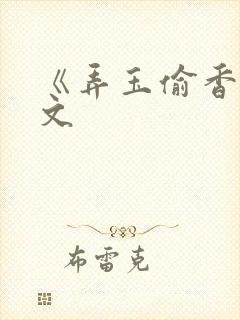 《弄玉偷香
文
布雷克